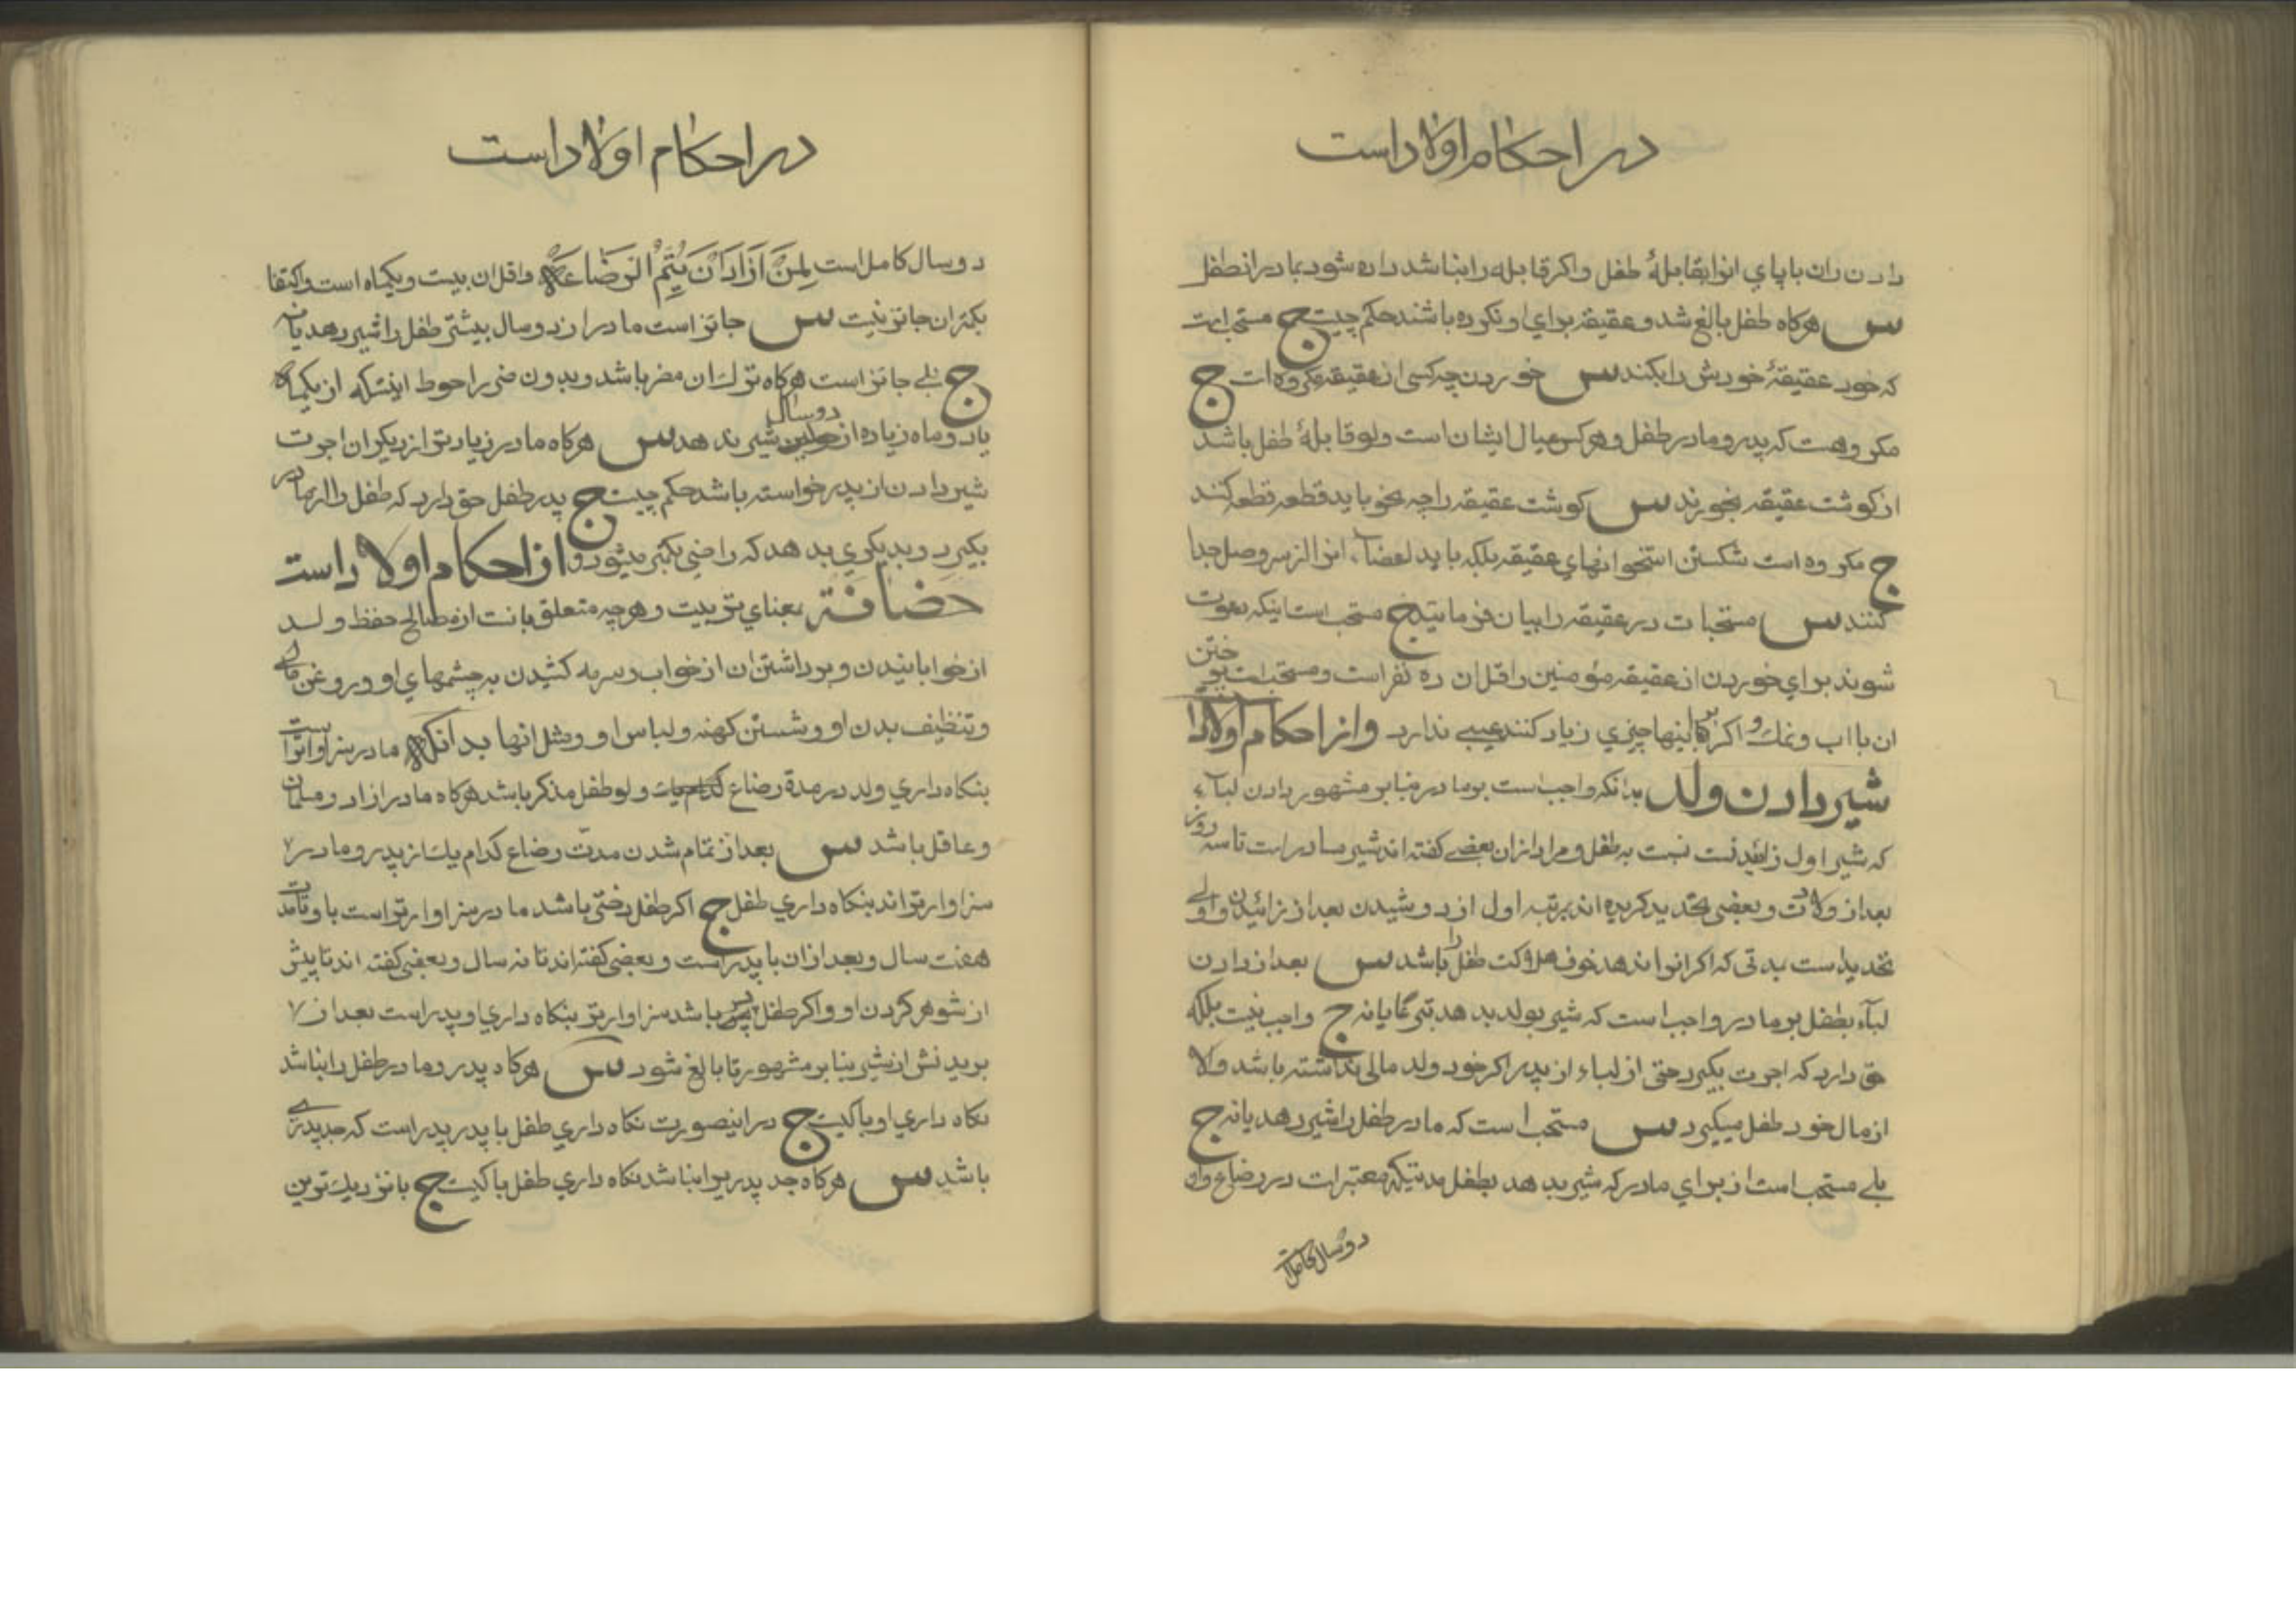 در احکام اولاد است
دادن ران با پای انرا بقابلهٔ طفل واکر قابله را بنا شد داده شود بمادر انطفل
س هرکاه طفل بالغ شد و عقیقه برای او نکرده باشند حکم چیست ج مستحب است
که خود عقیقهٔ خودش را بکند س خوردن چه کسی از عقیقه مکروه است ج
مکروهست که پدر و مادر طفل و هرکس عیال ایشان است ولو قابلهٔ طفل باشد
از کوشت عقیقه بخورند س کوشت عقیقه را چه نحو باید قطعه قطعه کنند
ج مکروه است شکستن استخوانهای عقیقه بلکه باید اعضاء انرا از سر وصل جدا
کنند س مستحبات در عقیقه را بیان فرمائید ج مستحب است اینکه دعوت
شوند برای خوردن از عقیقه مؤمنین و اقل ان ده نفر است و مستحب است پختن
ان با اب و نمک و اکر بر اینها چیزی زیاد کنند عیبی ندارد و از احکام اولاد
شیر دادن ولد بدانکه واجب است بر مادر بنا بر مشهور دادن لباء
که شیر اول زائیدنست نسبت به طفل و مراد از ان بعضی کفته اند شیر مادر است تا سه روز
بعد از ولادت و بعضی تحدید کرده اند بمرتبه اول از دوشیدن بعد از زائیدن و اولی
تحدید است بمدتی که اکر انرا ندهد خوف هلاکت طفل را باشد س بعد از دادن
لباء بطفل بر مادر واجب است که شیر بولد بدهد تبرعا یا نه ج واجب نیست بلکه
حق دارد که اجرت بکیرد حتی از لباء از پدر اکر خود ولد مالی نداشته باشد و الا
از مال خود طفل میکیرد س مستحب است که مادر طفل را شیر دهد یا نه ج
بلے مستحب است از برای مادر که شیر بدهد بطفل مدتیکه معتبر است در رضاع وان
دو سال کامل است
در احکام اولاد است
دو سال کامل است لِمَنْ اَرَادَ اَنْ یُتِمَّ الرَّضَاعَةَ واقل ان بیست و یکماه است و اکتفا
بکمتر ان جائز نیست س جائز است مادر از دو سال بیشتر طفل را شیر دهد یا نه
ج بلے جائز است هرکاه ترک ان مضر باشد و بدون ضرر احوط اینستکه از یکماه
یا دو ماه زیاده از دو سال شیر ندهد س هرکاه مادر زیادتر از دیکران اجرت
شیر دادن از پدر خواسته باشد حکم چیست ج پدر طفل حق دارد که طفل را از مادر
بکیرد و بدیکری بدهد که راضی بکمتر میشود و از احکام اولاد است
حضانة بمعنای تربیت و هرچه متعلق بانست از مصالح حفظ ولد
از خوابانیدن و برداشتن ان از خواب و سرمه کشیدن بر چشمهای او و روغن مالی
و تنظیف بدن او و شستن کهنه و لباس او و مثل انها بدانکه مادر سزاوارتر است
بنکاه داری ولد در مدة رضاع ولو طفل مذکر باشد هرکاه مادر ازاد و مسلمان
و عاقل باشد س بعد از تمام شدن مدت رضاع کدام یک از پدر و مادر
سزاوارتر اند بنکاه داری طفل ج اکر طفل دختر باشد مادر سزاوارتر است باو تا مدت
هفت سال و بعد از ان با پدر است و بعضی کفته اند تا نه سال و بعضی کفته اند تا پیش
از شوهر کردن او و اکر طفل پسر باشد سزاوارتر بنکاه داری او پدر است بعد از
بریدنش از شیر بنا بر مشهور تا بالغ شود س هرکاه پدر و مادر طفل را بنا شد
نکاه داری او با کیست ج در اینصورت نکاه داری طفل با پدر پدر است که جد پدری
باشد س هرکاه جد پدری را بنا شد نکاه داری طفل با کیست ج با نزدیک ترین